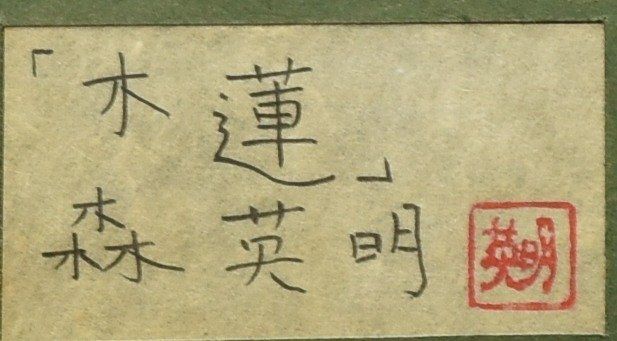 「木蓮」
森英明
英明